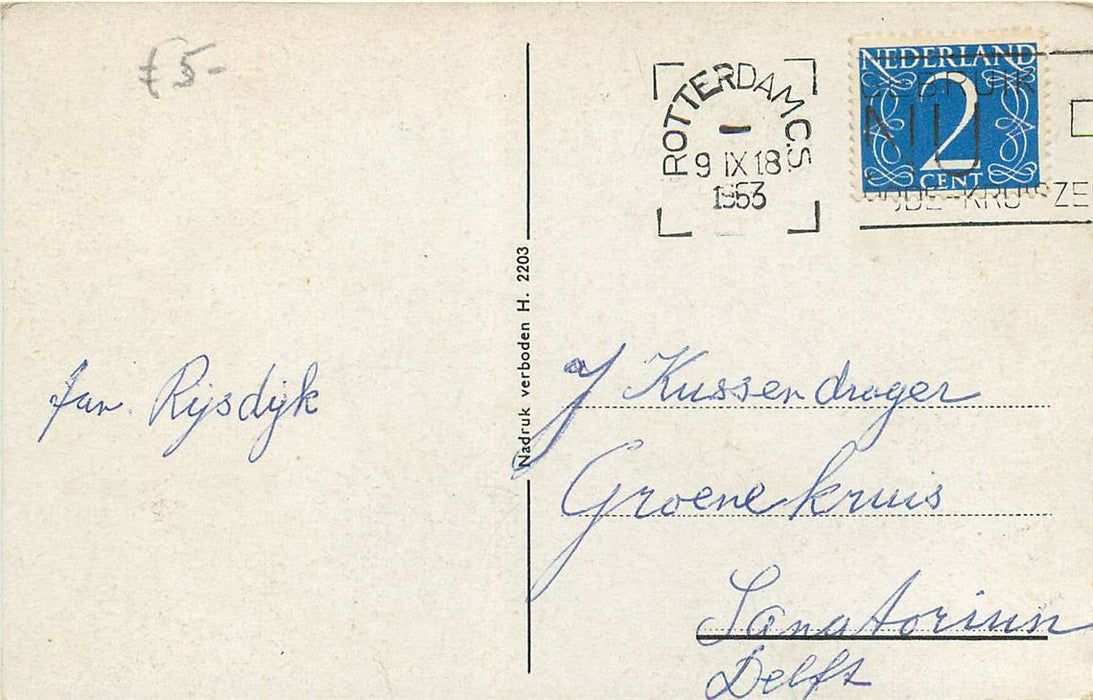 £5-
ROTTERDAM C.S
9 IX 18
1953
NEDERLAND
2
CENT
GEBRUIK
NU
RODE-KRUISZE
Nadruk verboden H. 2203
Jan Rijsdijk
J Kussendrager
Groenekruis
Sanatorium
Delft